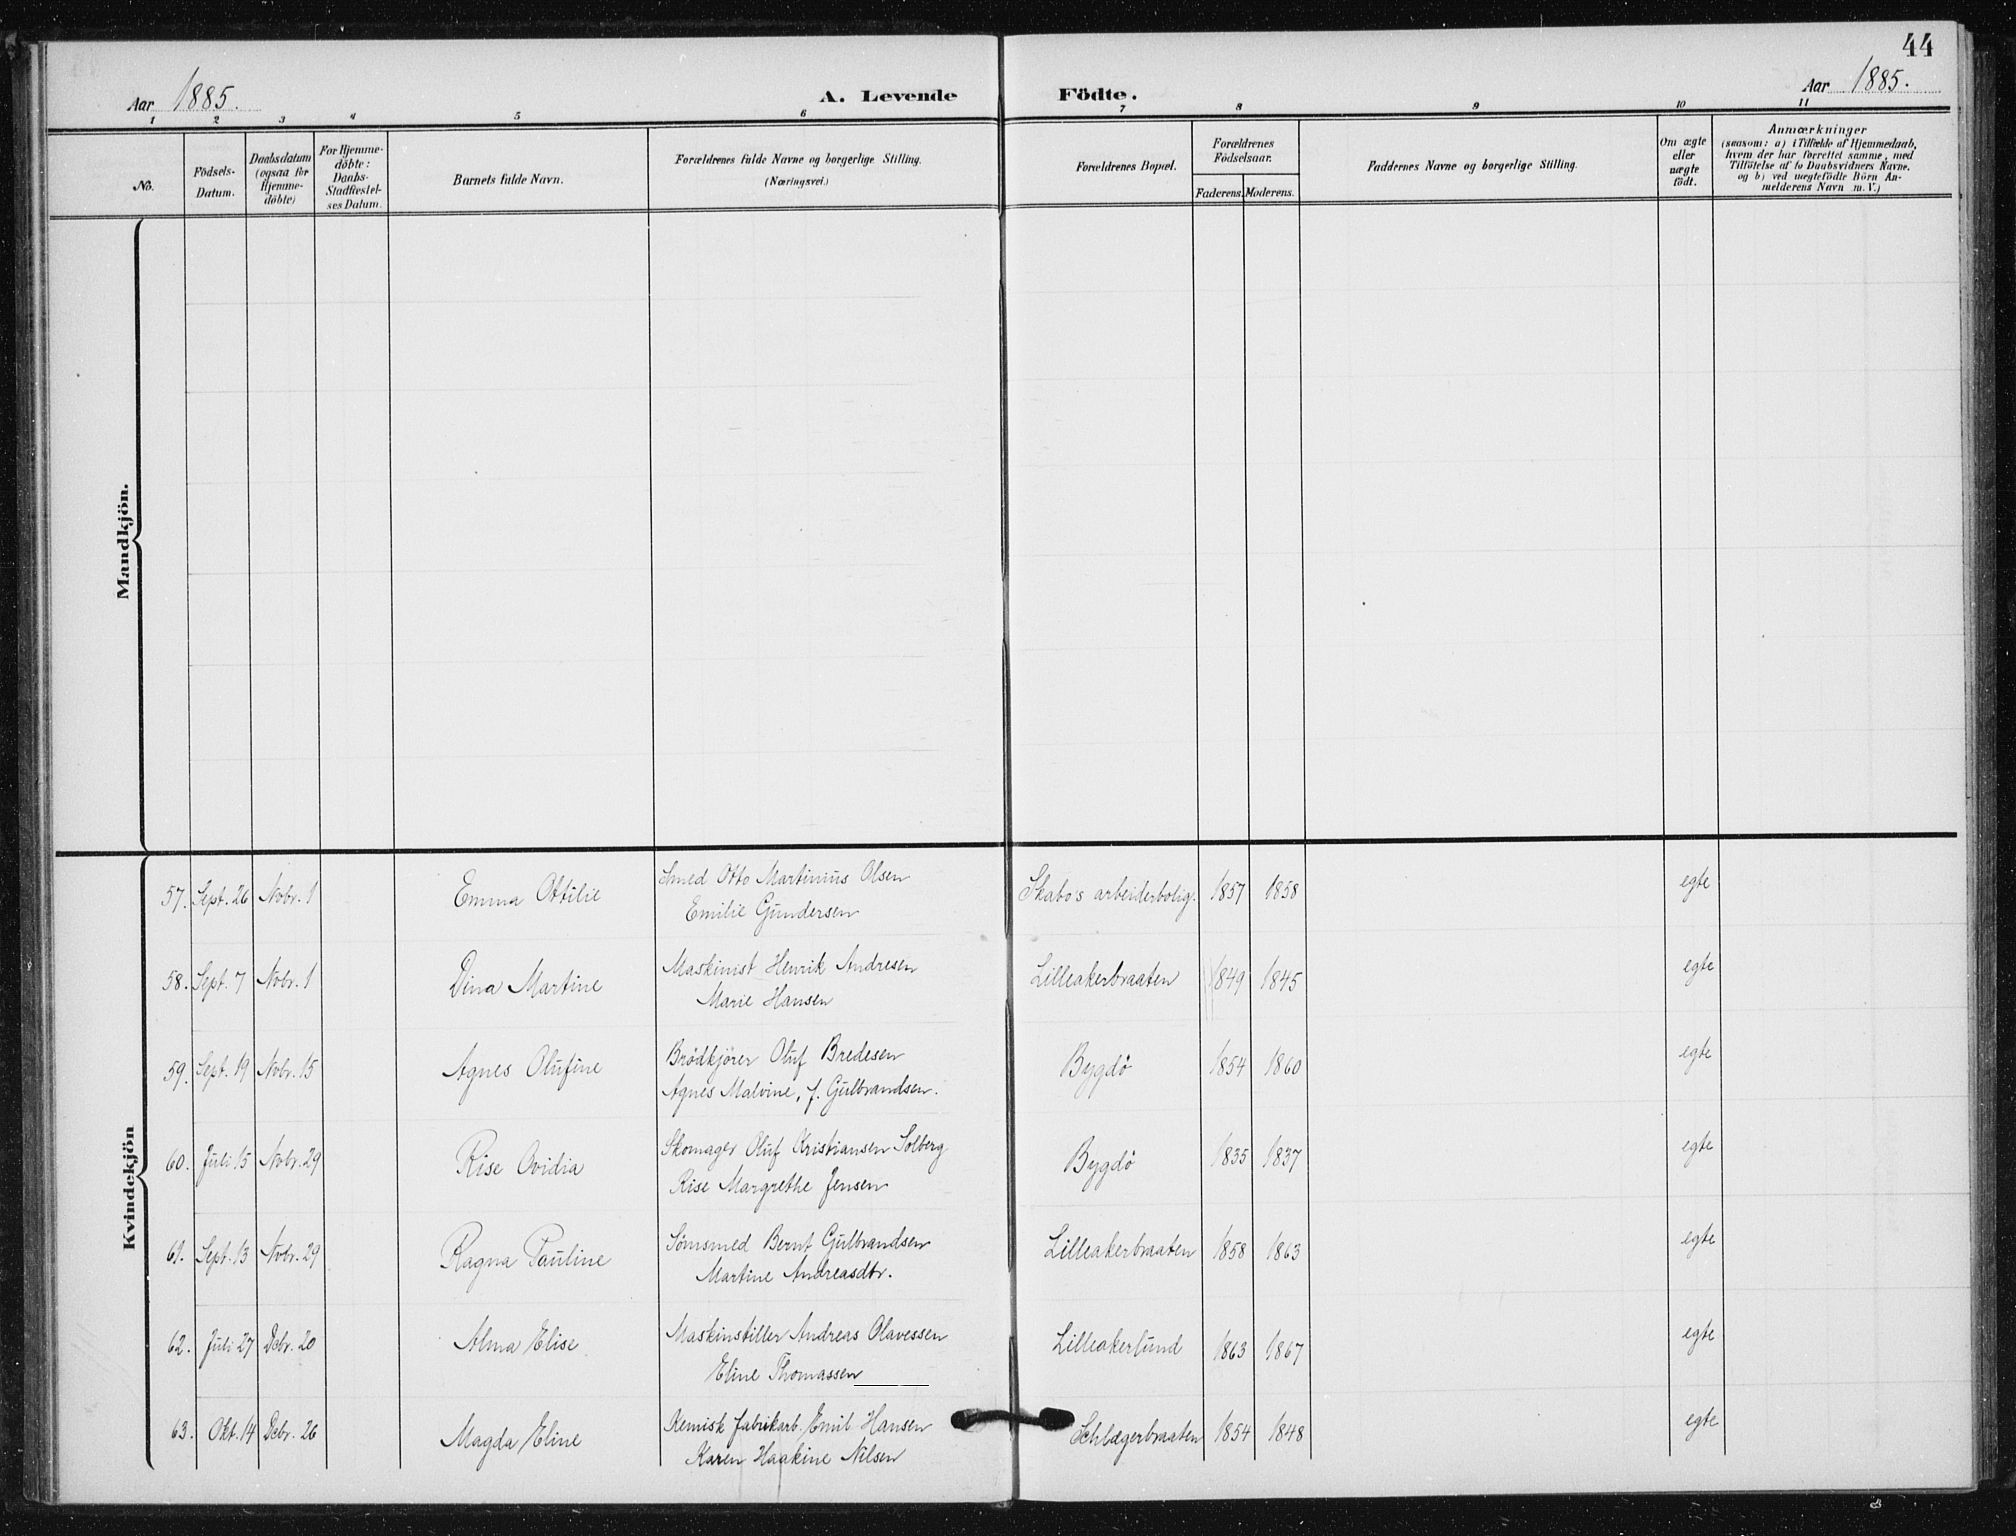 44
Aar 1885.
A. Levende Födte.
Aar 1885.
1 2 3 4 5 6 7 8 9 10 11
No.
Födsels-
Datum.
Daabsdatum
(ogsaa for
Hjemme-
döbte)
For Hjemme-
döbte:
Daabs-
Stadfæstel-
ses Datum.
Barnets fulde Navn.
Forældrenes fulde Navne og borgerlige Stilling.
(Næringsvei.)
Forældrenes Bopæl.
Forældrenes
Födselsaar.
Faderens. Moderens.
Faddernes Navne og borgerlige Stilling.
Om ægte
eller
uægte
födt.
Anmærkninger
(saasom: a) i Tilfælde af Hjemmedaab,
hvem der har forrettet samme, med
Tilföielse af to Daabsvidners Navne.
og b) ved uægtefödte Börn An-
melderens Navn m. V.)
Mandkjön.
Kvindekjön
57. Sept. 26 Novbr. 1 Emma Ottilie Smed Otto Martinius Olsen Skabo's arbeiderbolig. 1857 1858 egte
Emilie Gundersen
58. Sept. 7 Novbr. 1 Dina Martine Maskinist Henrik Andresen Lilleakerbraaten 1849 1845 egte
Marie Hansen
59. Sept. 19 Novbr. 15 Agnes Olufine Brödkjörer Oluf Bredesen Bygdö 1854 1860 egte
Agnes Malvine, f. Gulbrandsen.
60. Juli 15 Novbr. 29 Rise Ovidia Skomager Oluf Kristiansen Solberg Bygdö 1835 1837 egte
Rise Margrethe Jensen
61. Sept. 13 Novbr. 29 Ragna Pauline Sömsmed Bernt Gulbrandsen Lilleakerbraaten 1858 1863 egte
Martine Andreasdtr.
62. Juli 27 Decbr. 20 Alma Elise Maskinstiller Andreas Olavessen Lilleakerlund 1863 1867 egte
Eline Thomassen
63. Okt. 14 Decbr. 26 Magda Eline Kemisk fabrikarb. Emil Hansen Schlægerbraaten 1854 1848 egte
Karen Haakine Nilsen